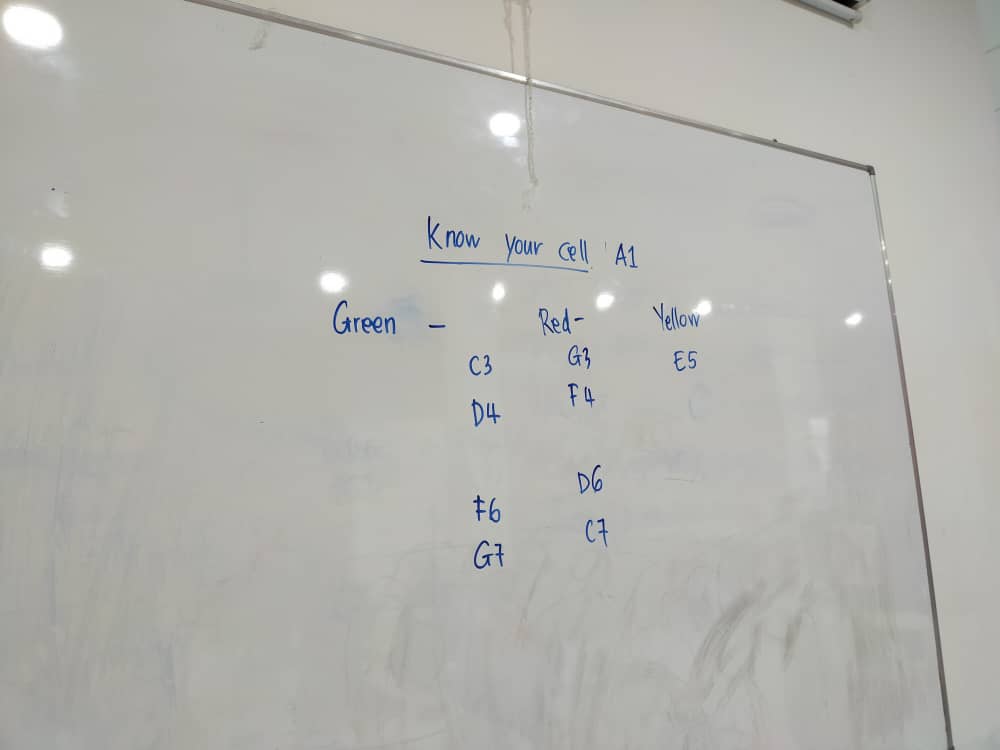 Know your cell A1
Green - Red- Yellow
C3 G3 E5
D4 F4
F6 D6
G7 C7